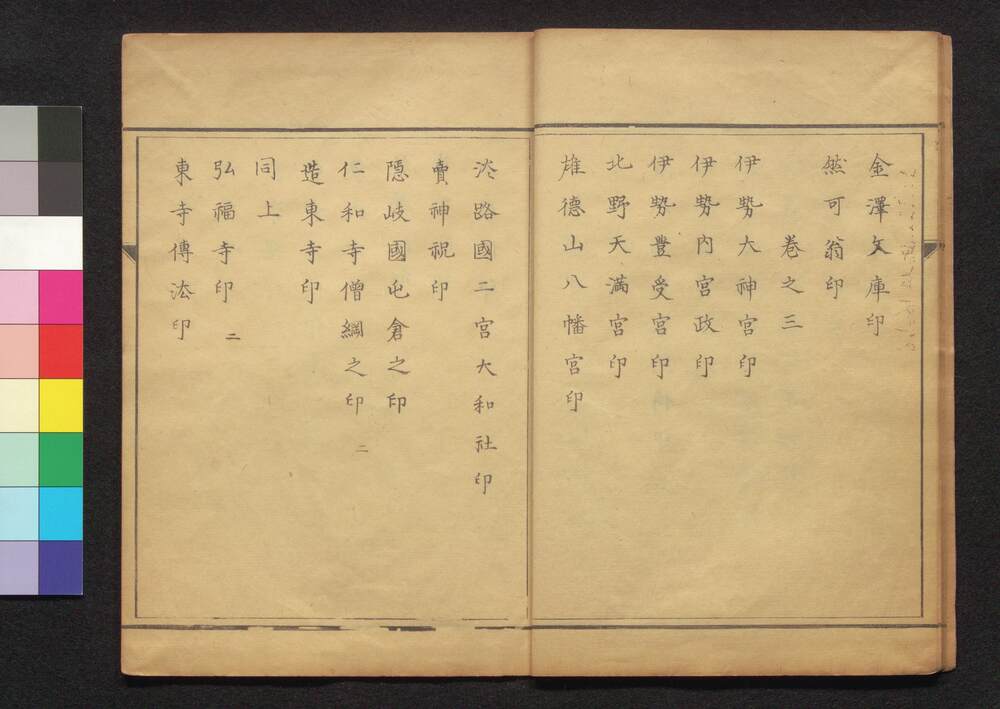 金澤文庫印
然可翁印
巻之三
伊勢大神宮印
伊勢内宮政印
伊勢豊受宮印
北野天満宮印
雄德山八幡宮印
淡路國二宮大和社印
賣神祝印
隠岐國屯倉之印
仁和寺僧綱之印 二
造東寺印
同上
弘福寺印 二
東寺傳法印